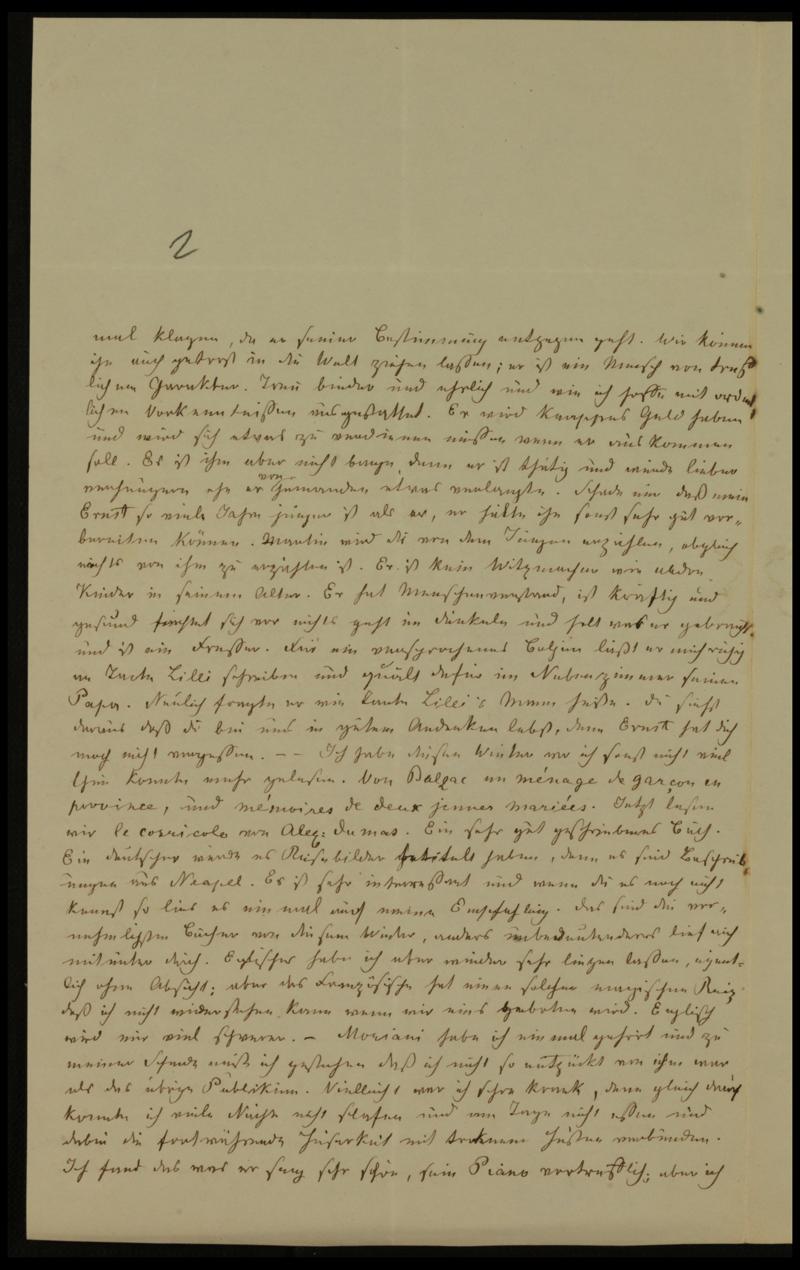 2
mal klagen, da er seiner Bestimmung entgegen geht. Wir können
ihn auch getrost in die Welt ziehen lassen; er ist ein Mensch von treff
lichem Charakter. Treu bieder und ehrlich und wie ich hoffe mit ordent
lichen Vorkenntnissen ausgestattet. Er wird knappes Geld haben
und wird sich etwas zu verdienen müssen wenn er auskommen
soll. Es ist ihm aber nicht bange, denn er ist thätig und würde lieber
verhungern ehe er von Jemanden etwas verlangte. Schade nur daß mein
Ernst so viele Jahre jünger ist als er, er hätte ihn sonst sehr gut vor-
bereiten können. Martin wird dir von dem Jungen erzählen, obgleich
nichts von ihm zu erzählen ist. Er ist kein Witzmacher wie andre
Kinder in seinem Alter. Er hat Menschenverstand, ist kräftig und
gesund fürchtet sich vor nichts geht im dunkeln und holt was er gebraucht
und ist ein Fresser. Für ein versprochenes läßt er mich ruhig
an Tante Lilli schreiben und quält dafür im Nebenzimmer seinen
Papa. Neulich fragte er wie tante Lilli's Mann heiße. du siehst
daraus daß du bei uns in gutem Andenken lebst, denn Ernst hat dich
noch nicht vergessen. – – Ich habe diesen Winter wo ich sonst nicht viel
thun konnte mehr gelesen. Von Balzac un ménage de garçon en
province, und mémoires de deux jeunes mariées. Jetzt lesen
wir le corricolo von Alex: Dumas. Ein sehr gut geschriebenes Buch.
Ein deutscher würde es Reisebilder betitelt haben, denn es sind Beschreib
ungen aus Neapel. Es ist sehr interessant und wenn du es noch nicht
kennst so lies es einmal auf meine Empfehlung. das sind die vor-
nehmlichsten Bücher von diesem Winter, anders unbedeutenderes lief auch
mitunter durch. Englisches habe ich aber wieder sehr liegen lassen, eigent-
lich ohne Absicht; aber das Französische hat einen solchen magischen Reiz
daß ich nicht widerstehen kann wenn mir eins geboten wird. Englisch
wird mir viel schwerer. – Moriani habe ich einmal gehört und zu
meiner Schande muß ich gestehen daß ich nicht so entzückt von ihm war
als das übrige Publikum. Vielleicht war ich schon krank, denn gleich drauf
konnte ich viele Nächte nicht schlafen und am Tage nicht essen und
dabei die fortwährende Heiserkeit mit trockenem Husten verbunden.
Ich fand das was er sang sehr schön, sein Piano vortrefflich; aber ich